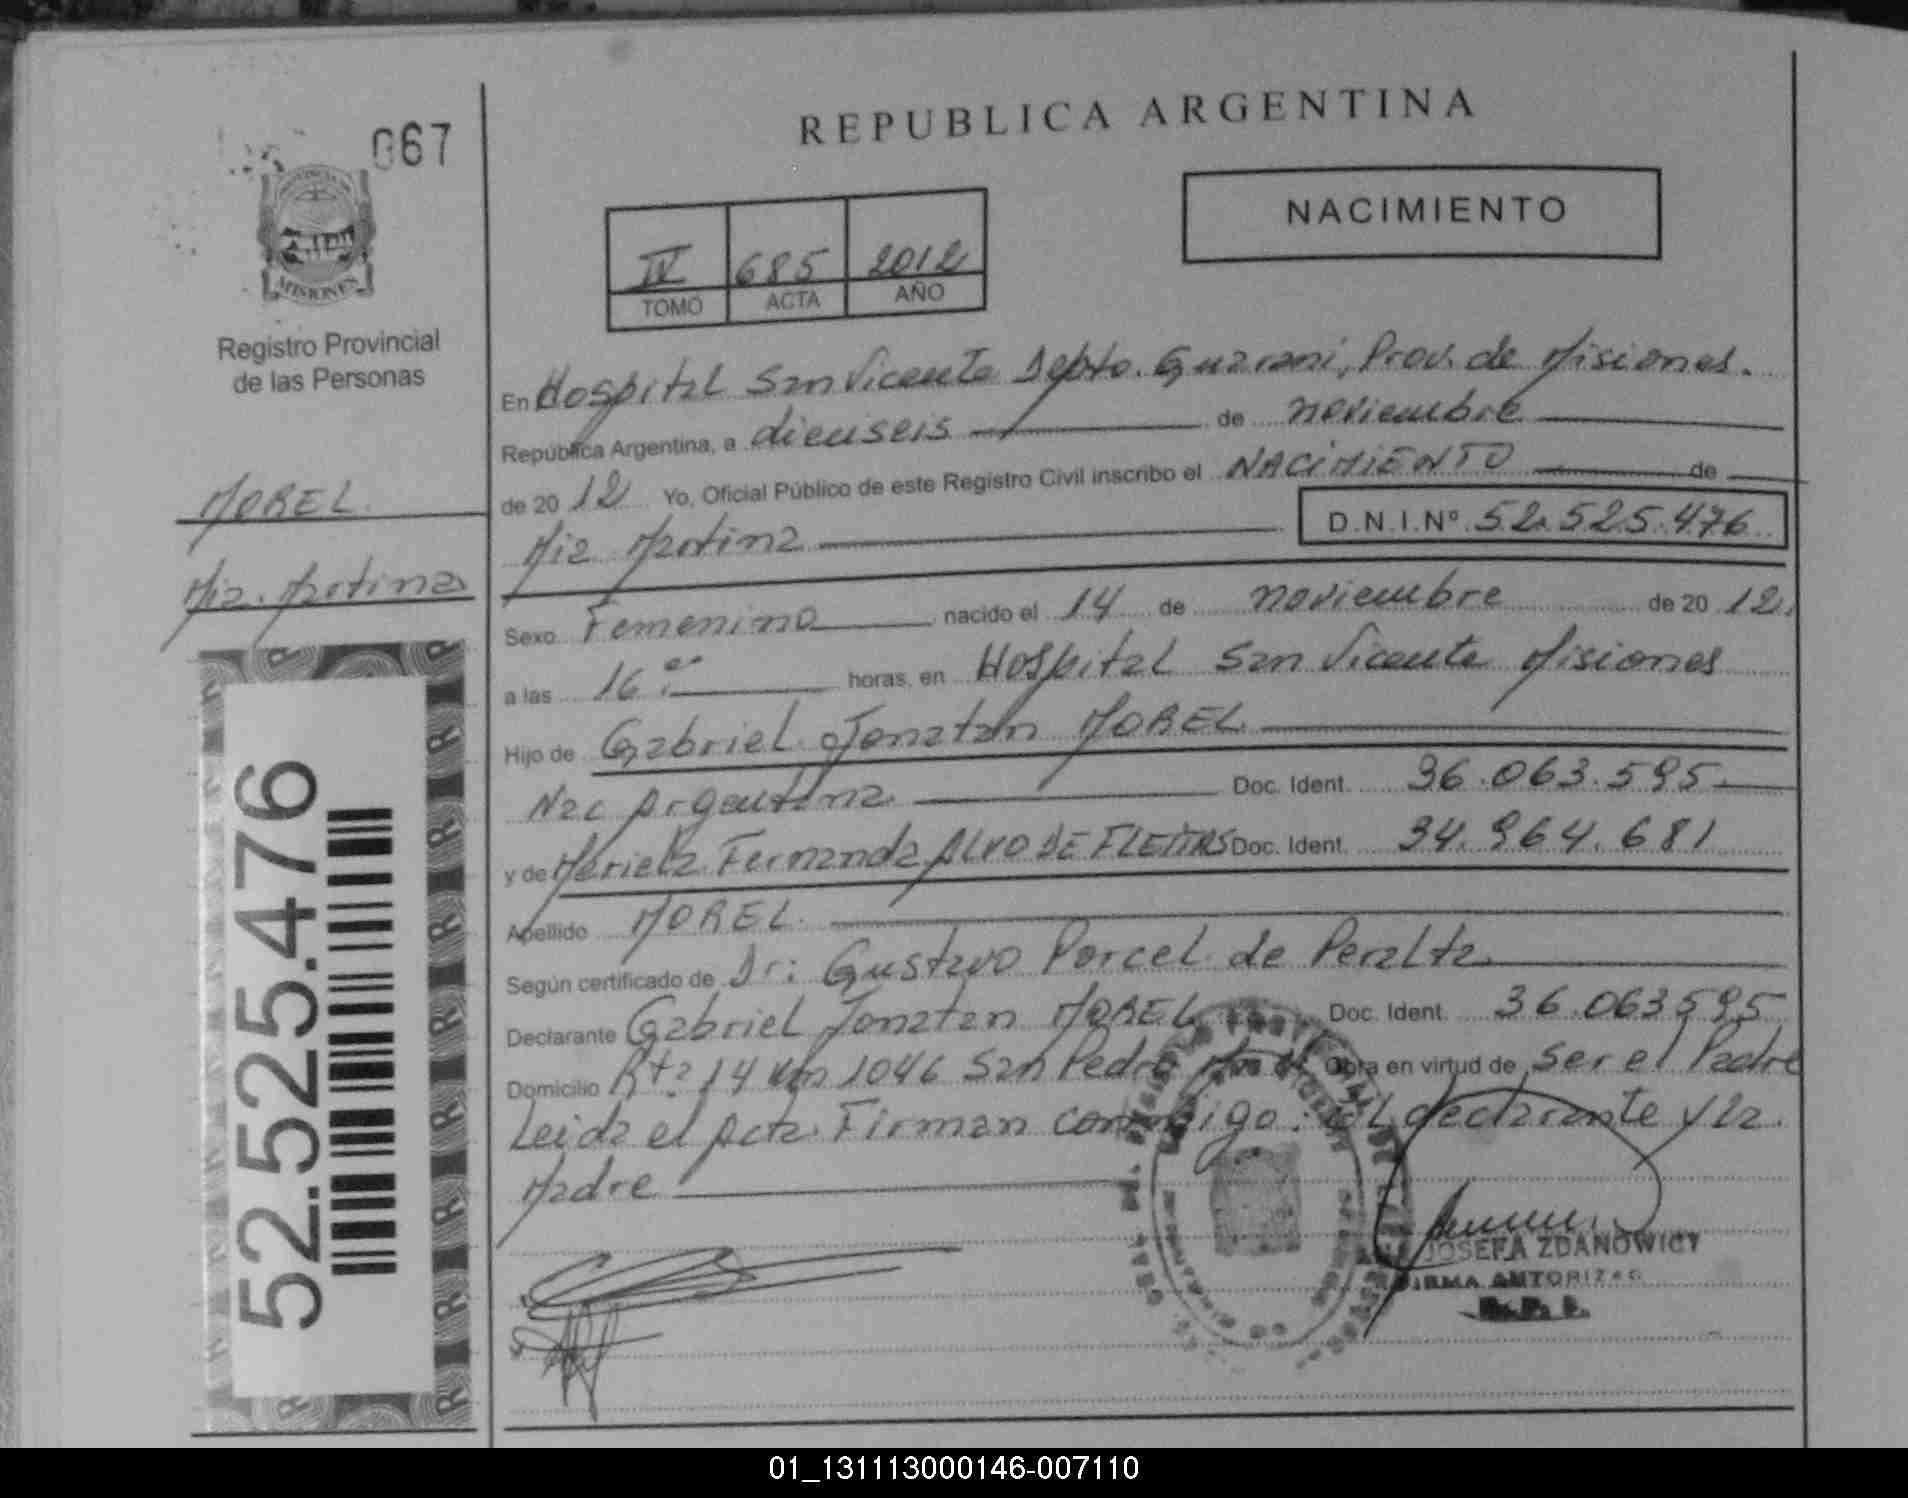 067
REPUBLICA ARGENTINA
PROVINCIA DE
MISIONES
Registro Provincial
de las Personas
NACIMIENTO
IV 685 2012
TOMO ACTA AÑO
En Hospital San Vicente Depto. Guarani, Prov. de Misiones.
República Argentina, a dieciseis de noviembre
de 2012 Yo, Oficial Público de este Registro Civil inscribo el NACIMIENTO de
MOREL
Mia Martina
D.N.I.Nº 52.525.476
Mia Martina
Sexo Femenino nacido el 14 de noviembre de 2012
a las 16 horas, en Hospital San Vicente Misiones
Hijo de Gabriel Jonatan MOREL
Nac Argentina Doc. Ident. 36.063.595
y de Mariela Fernanda ALVO DE FLEITAS Doc. Ident. 34.964.681
Apellido MOREL
Según certificado de Dr: Gustavo Porcel de Peralta
Declarante Gabriel Jonatan MOREL Doc. Ident. 36.063595
Domicilio Rta 14 Km 1046 San Pedro Obra en virtud de ser el Padre
Leida el Acta Firman conmigo: el declarante y la
Madre
52.525.476
JOSEFA ZDANOWICY
FIRMA AUTORIZAD
01_131113000146-007110